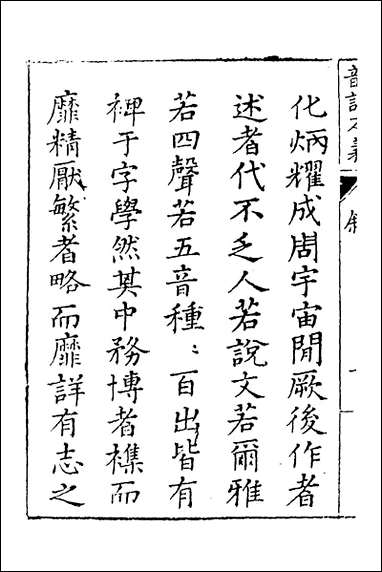 化炳耀成周宇宙閒厥後作者
述者代不乏人若說文若爾雅
若四聲若五音種〻百出皆有
裨于字學然其中務博者樵而
靡精厭繁者略而靡詳有志之